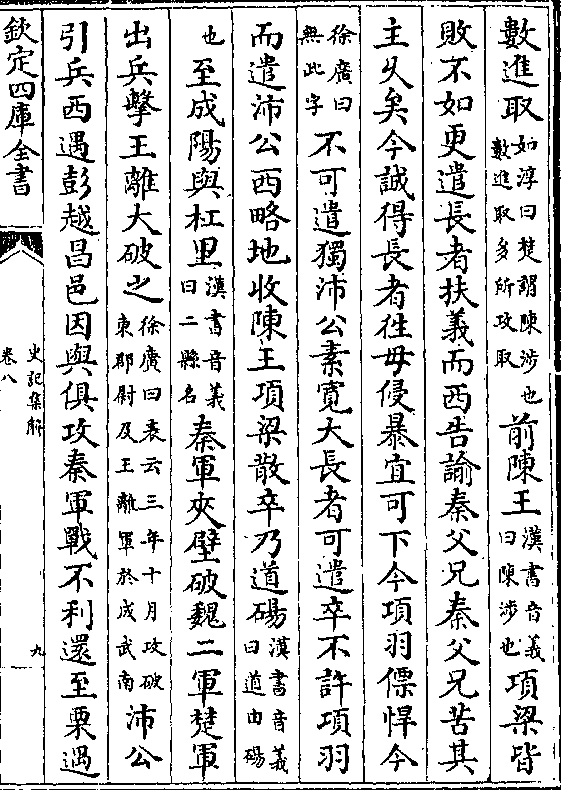 數進取如淳曰楚謂陳涉也數進取多所攻取前陳王漢書音義曰陳涉也項梁皆
敗不如更遣長者扶義而西告諭秦父兄秦父兄苦其
主久矣今誠得長者徃毋侵暴宜可下今項羽僄悍今
徐廣曰無此字不可遣獨沛公素寛大長者可遣卒不許項羽
而遣沛公西略地收陳王項梁散卒乃道碭漢書音義曰道由碭
也至成陽與杠里漢書音義曰二縣名秦軍夾壁破魏二軍楚軍
出兵擊王離大破之徐廣曰表云三年十月攻破東郡尉及王離軍於成武南沛公
引兵西遇彭越昌邑因與俱攻秦軍戰不利還至栗遇
欽定四庫全書
史記集解
卷八
九